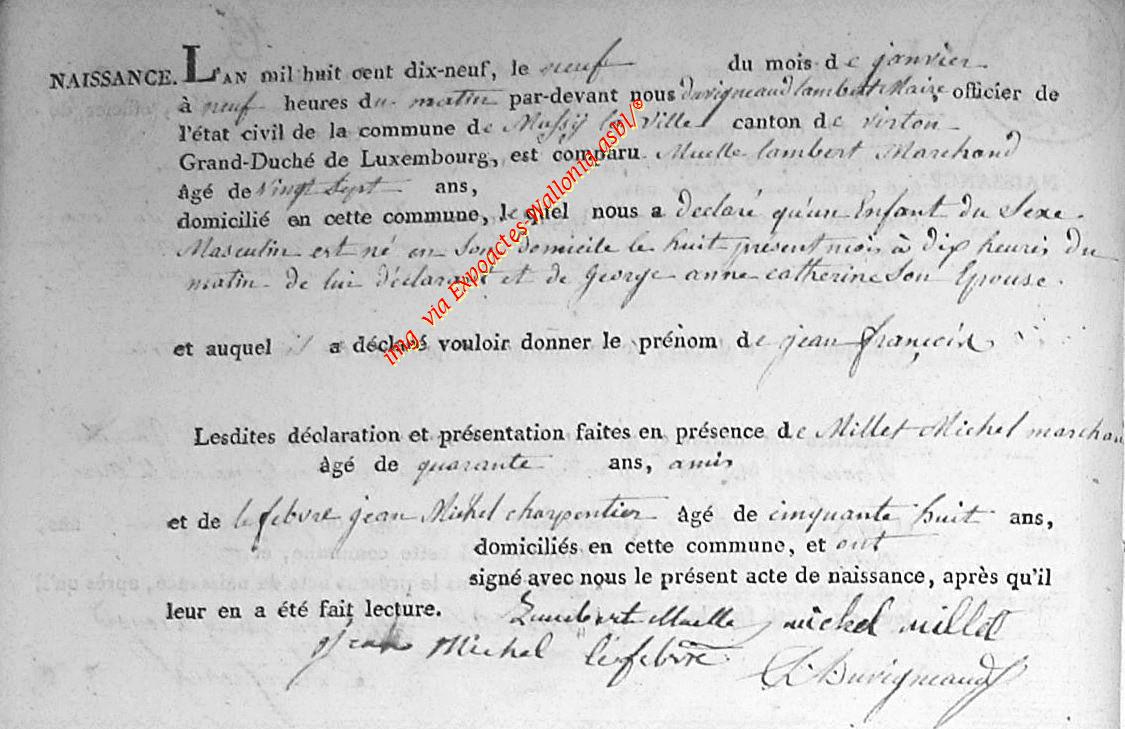 NAISSANCE. L'AN mil huit cent dix-neuf, le neuf du mois de janvier
à neuf heures du matin par-devant nous duvigneaud lambert Maire officier de
l'état civil de la commune de Mussy la ville canton de virton
Grand-Duché de Luxembourg, est comparu Muelle lambert Marchand
âgé de vingt sept ans,
domicilié en cette commune, le quel nous a déclaré qu'un Enfant du Sexe
Masculin est né en Son domicile le huit présent mois à dix heures du
matin de lui déclarant et de george anne catherine Son Epouse.
et auquel il a déclaré vouloir donner le prénom de jean françois
Lesdites déclaration et présentation faites en présence de Millet Michel marchand
âgé de quarante ans, amis
et de lefebvre jean Michel charpentier âgé de cinquante huit ans,
domiciliés en cette commune, et ont
signé avec nous le présent acte de naissance, après qu'il
leur en a été fait lecture. Lambert Muelle michel millet
jean Michel lefebvre L Duvigneaud
img via Expoactes-Wallonia.asbl/©